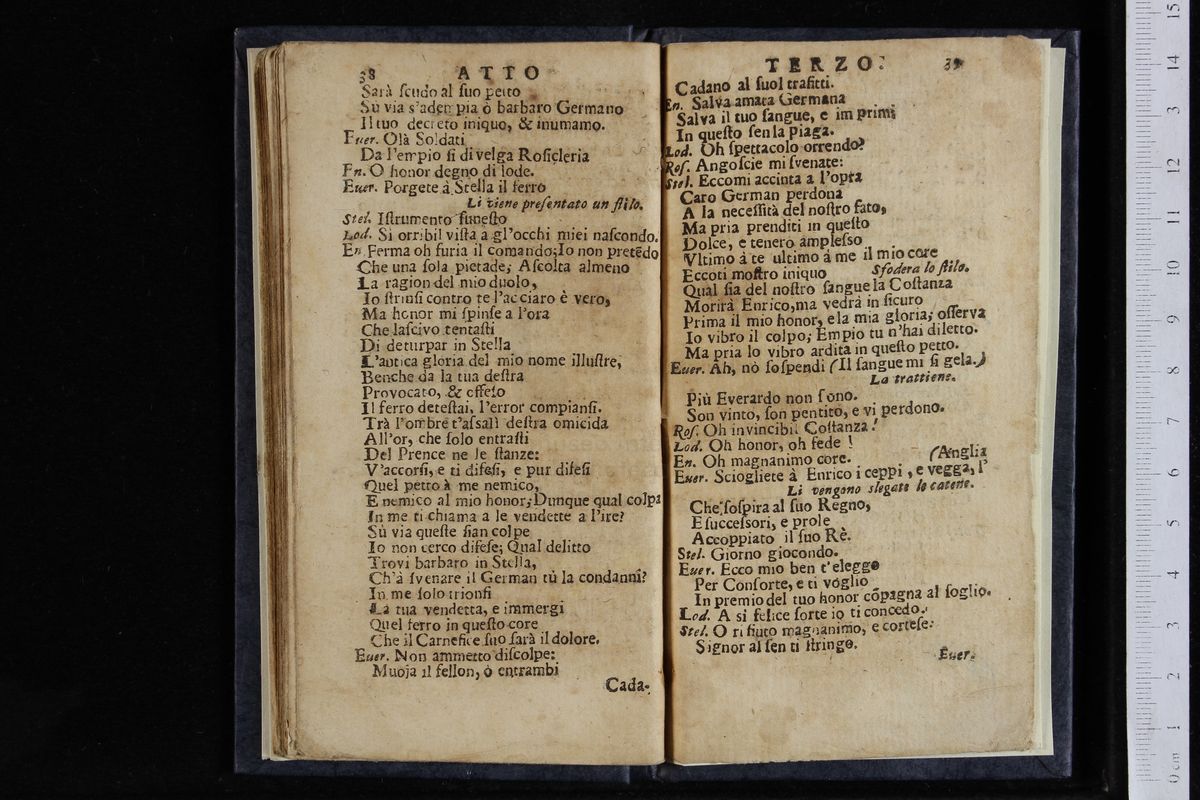 38 ATTO
Sarà ſcudo al ſuo petto
Su via s'adempia ò barbaro Germano
Il tuo decreto iniquo, & inumamo.
Euer. Olà Soldati
Da l'empio ſi divelga Roſicleria
En. O honor degno di lode.
Euer. Porgete à Stella il ferro
Li viene preſentato un ſtilo.
Stel. Iſtrumento funeſto
Lod. Si orribil viſta a gl'occhi miei naſcondo.
En Ferma oh furia il comando; Io non pretẽdo
Che una ſola pietade; Aſcolta almeno
La ragion del mio duolo,
Io ſtrinſi contro te l'acciaro è vero,
Ma honor mi ſpinſe a l'ora
Che laſcivo tentaſti
Di deturpar in Stella
L'antica gloria del mio nome illuſtre,
Benche da la tua deſtra
Provocato, & offeſo
Il ferro deteſtai, l'error compianſi.
Trà l'ombre t'aſsalì deſtra omicida
All'or, che ſolo entraſti
Del Prence ne le ſtanze:
V'accorſi, e ti difeſi, e pur difeſi
Quel petto à me nemico,
E nemico al mio honor; Dunque qual colpa
In me ti chiama a le vendette a l'ire?
Sù via queſte ſian colpe
Io non cerco difeſe; Qual delitto
Trovi barbaro in Stella,
Ch'à ſvenare il German tù la condanni?
In me ſolo trionfi
La tua vendetta, e immergi
Quel ferro in queſto core
Che il Carnefice ſuo ſarà il dolore.
Euer. Non ammetto diſcolpe:
Muoja il fellon, ò entrambi
Cada-
TERZO. 39
Cadano al ſuol trafitti.
En. Salva amata Germana
Salva il tuo ſangue, e im primi
In queſto ſen la piaga.
Lod. Oh ſpettacolo orrendo?
Roſ. Angoſcie mi ſvenate:
Stel. Eccomi accinta a l'opra
Caro German perdona
A la neceſſità del noſtro fato,
Ma pria prenditi in queſto
Dolce, e tenero ampleſso
Vltimo à te ultimo à me il mio core
Eccoti moſtro iniquo Sfodera lo ſtilo.
Qual ſia del noſtro ſangue la Coſtanza
Morirà Enrico, ma vedrà in ſicuro
Prima il mio honor, e la mia gloria; oſſerva
Io vibro il colpo; Empio tu n'hai diletto.
Ma pria lo vibro ardita in queſto petto.
Euer. Ah, nò ſoſpendi (Il ſangue mi ſi gela.)
La trattiene.
Più Everardo non ſono.
Son vinto, ſon pentito, e vi perdono.
Roſ. Oh invincibil Coſtanza!
Lod. Oh honor, oh fede!
En. Oh magnanimo core. (Anglia
Euer. Sciogliete à Enrico i ceppi, e vegga, l'
Li vengono slegate le catene.
Che ſoſpira al ſuo Regno,
E ſucceſſori, e prole
Accoppiato il ſuo Rè.
Stel. Giorno giocondo.
Euer. Ecco mio ben t'eleggo
Per Conſorte, e ti voglio
In premio del tuo honor cõpagna al ſoglio.
Lod. A si felice ſorte io ti concedo.
Stel. O rifiuto magnanimo, e corteſe:
Signor al ſen ti ſtringo.
Euer.
0 cm 1 2 3 4 5 6 7 8 9 10 11 12 13 14 15